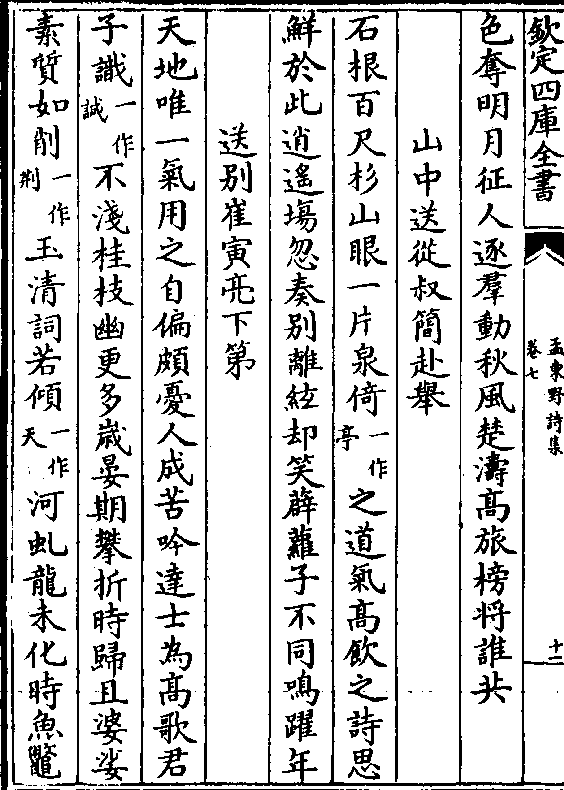 欽定四庫全書
孟東野詩集
卷七
十一
色奪明月征人逐羣動秋風楚濤高旅榜将誰共
山中送從叔簡赴舉
石根百尺杉山眼一片泉倚一作亭之道氣高飲之詩思
鮮於此逍遙塲忽奏別離絃却笑薜蘿子不同鳴躍年
送別崔寅亮下第
天地唯一氣用之自偏頗憂人成苦吟達士為高歌君
子識一作誠不淺桂枝幽更多嵗晏期攀折時歸且婆娑
素質如削一作荆玉清詞若傾一作天河虬龍未化時魚鼈